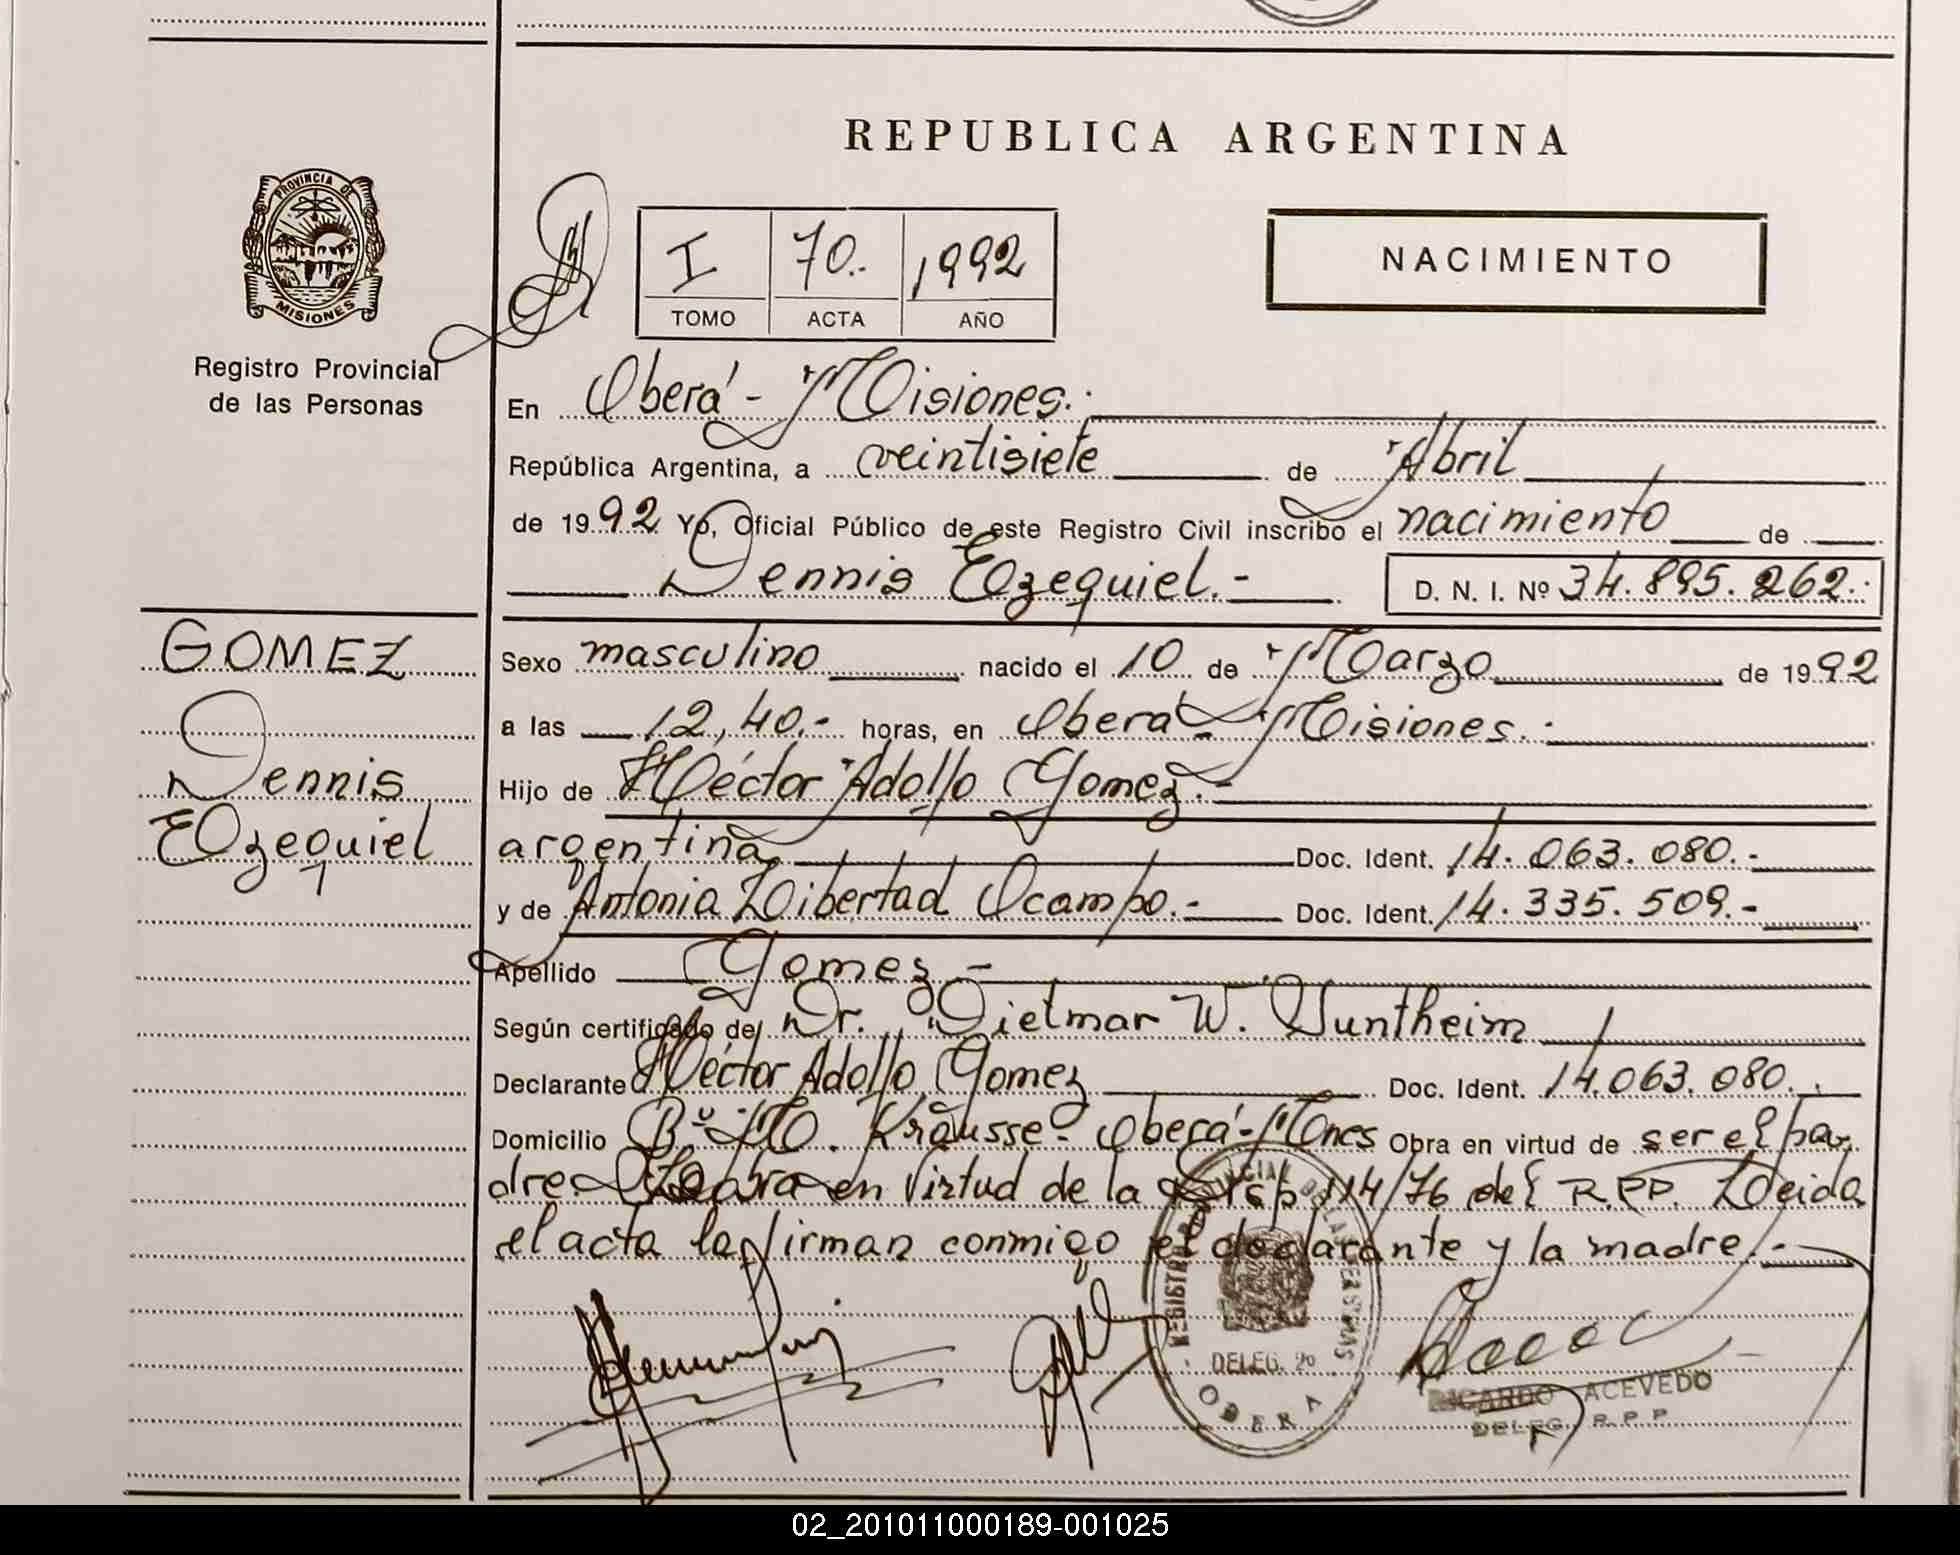 REPUBLICA ARGENTINA
PROVINCIA DE
MISIONES
Registro Provincial
de las Personas
I 70.. 1992
TOMO ACTA AÑO
NACIMIENTO
En Oberá - Misiones.-
República Argentina, a veintisiete de Abril
de 1992 Yo, Oficial Público de este Registro Civil inscribo el nacimiento de
Dennis Ezequiel.- D. N. I. Nº 34.895.262.-
GOMEZ
Dennis
Ezequiel
Sexo masculino nacido el 10 de Marzo de 1992
a las 12,40.- horas, en Oberá - Misiones.-
Hijo de Héctor Adolfo Gomez.-
argentina Doc. Ident. 14.063.080.-
y de Antonia Libertad Ocampo.- Doc. Ident. 14.335.509.-
Apellido Gomez -
Según certificado de Dr. Dietmar W. Guntheim
Declarante Héctor Adolfo Gomez Doc. Ident. 14.063.080.
Domicilio Bº M. Krausse - Oberá - Mnes Obra en virtud de ser el pa
dre. obra en virtud de la Disp 114/76 del R.P.P. Leida
el acta la firman conmigo el declarante y la madre.-
REGISTRO PROVINCIAL DE LAS PERSONAS
DELEG. 2º
OBERA
RICARDO ACEVEDO
DELEG. R.P.P
02_201011000189-001025